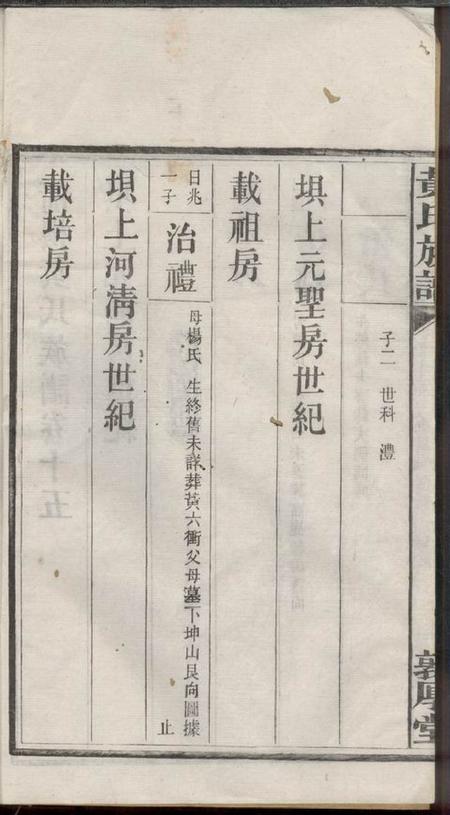 黃氏族譜
敦厚堂
子二 世科 澧
垻上元聖房世紀
載祖房
日兆
一子
治禮
母楊氏 生終舊未詳葬黃六衝父母墓下坤山艮向圖據
止
垻上河清房世紀
載培房